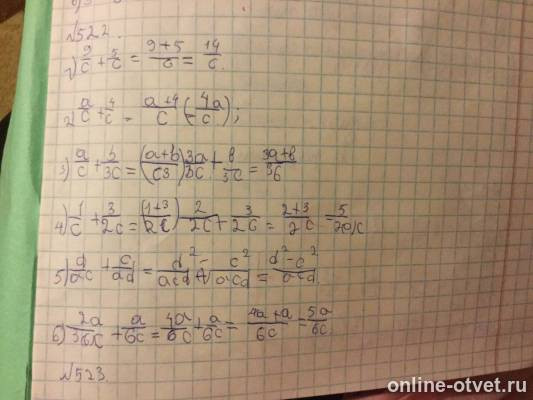 №522.
1) 9/c + 5/c = (9+5)/c = 14/c.
2) a/c + 4/c = (a+4)/c (4a/c);
3) a/c + b/3c = ((a+b)/c3) 3a/3c + b/3c = (3a+b)/36
4) 1/c + 3/2c = ((1+3)/2c) 2/2c + 3/2c = (2+3)/2c = 5/2c
5) d/ac + c/ad = d²/acd - c²/acd = (d²-c²)/acd
6) 2a/3c + a/6c = 4a/6c + a/6c = (4a+a)/6c = 5a/6c
№523.
online-otvet.ru